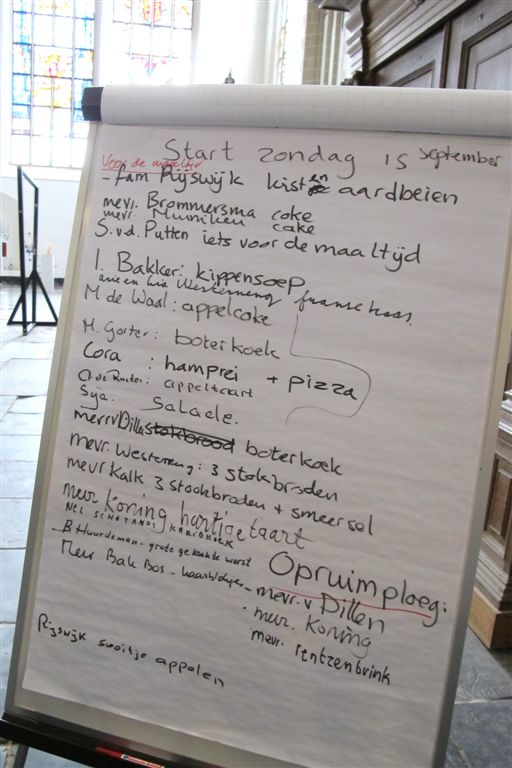 Start zondag 15 september
Voor de maaltijd
- fam Rijswijk kisten aardbeien
mevr. Brommersma cake
mevr. Mumiken cake
S.v.d. Putten iets voor de maaltijd
I. Bakker: kippensoep
franse kaas.
M de Waal: appelcake
M. Gorter: boterkoek
Cora : hamprei + pizza
A. de Ruiter: appeltaart
Sya. Salade.
mevr v Dillen stokbrood boterkoek
mevr. Westeneng: 3 stokbroden
mevr Kalk 3 stookbroden + smeersel
mevr koning hartige taart
NEL SCHOTANUS KARIOKOEK
B Huurdeman - grote gekookte worst
Mevr Bak Bos - kaasblokjes
Opruimploeg:
- mevr. v Dillen
- mevr. Koning
mevr. rentzenbrink
Rijswijk sooitje appelen